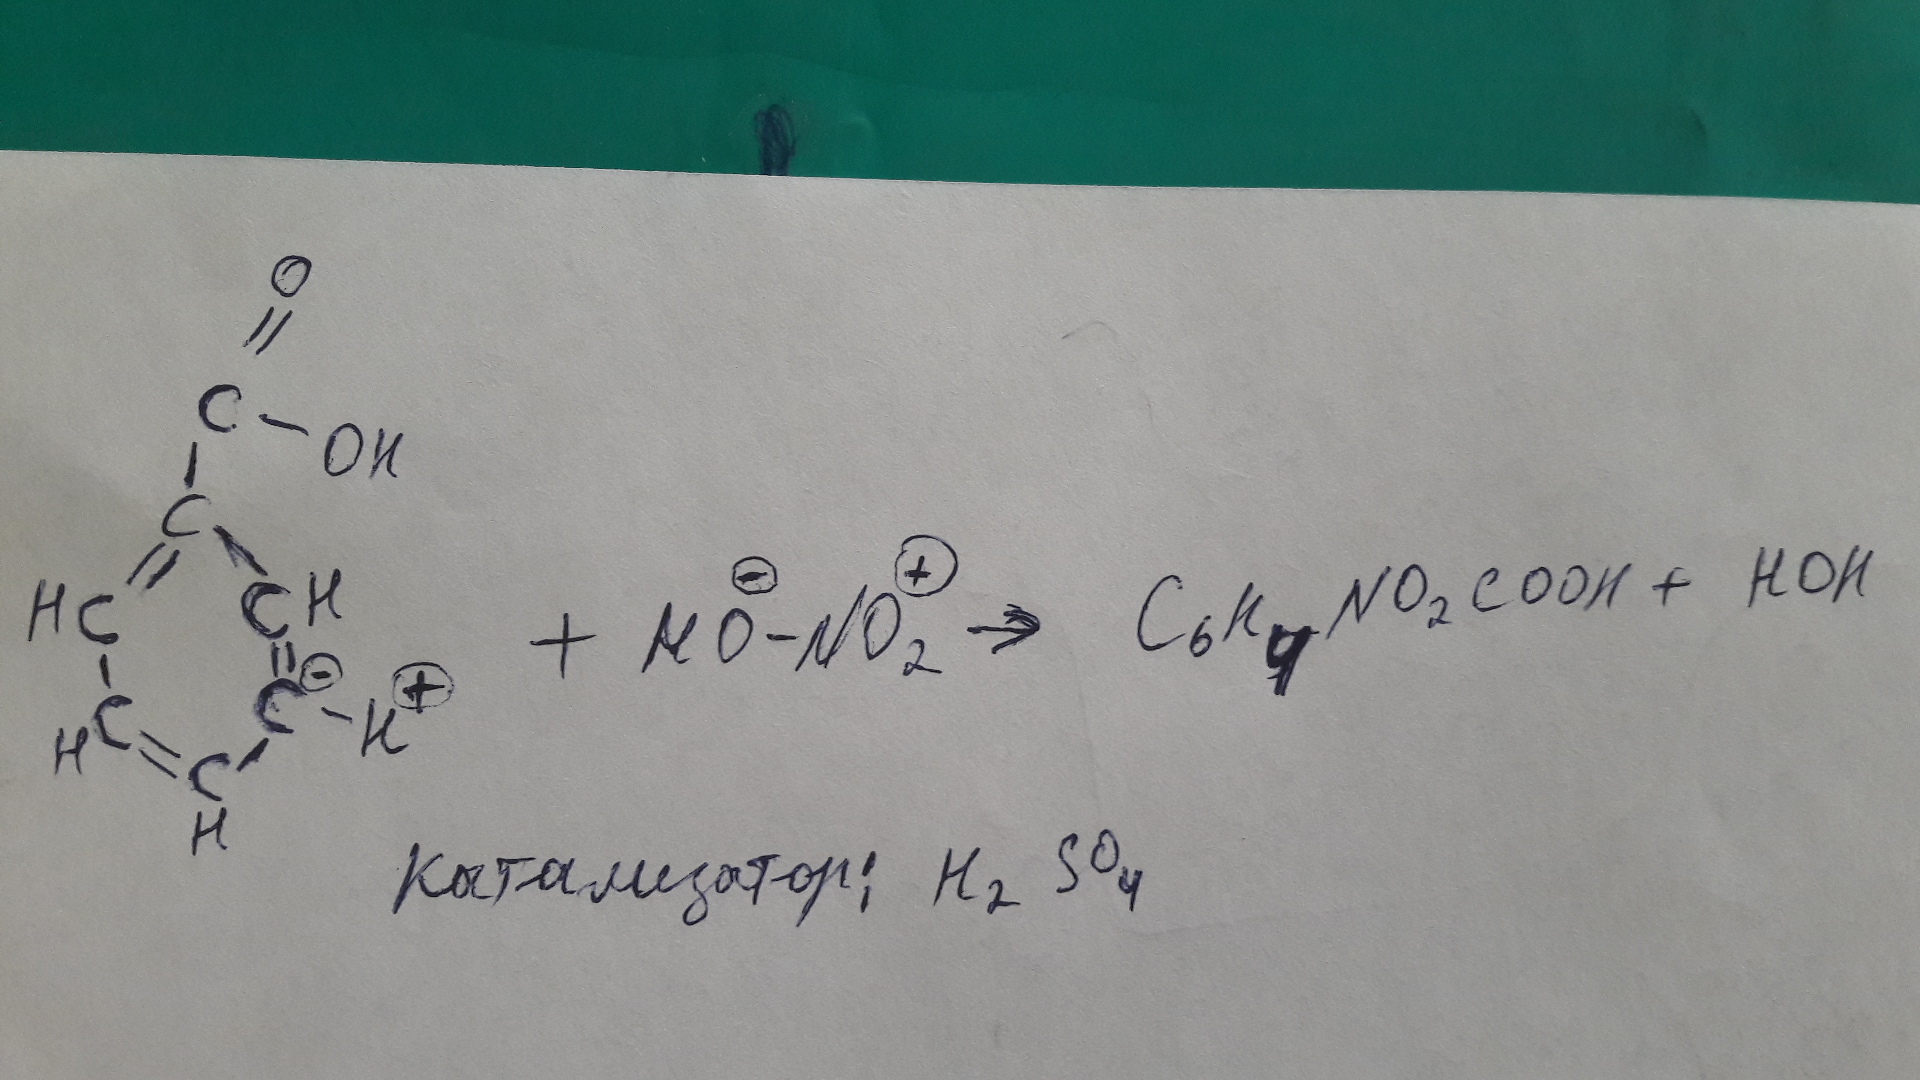 O
//
C - OH
|
C
HC CH
C⊖ - H⊕ + HO⊖-NO₂⊕ → C₆H₄NO₂COOH + HOH
HC
C
H
Катализатор: H₂SO₄